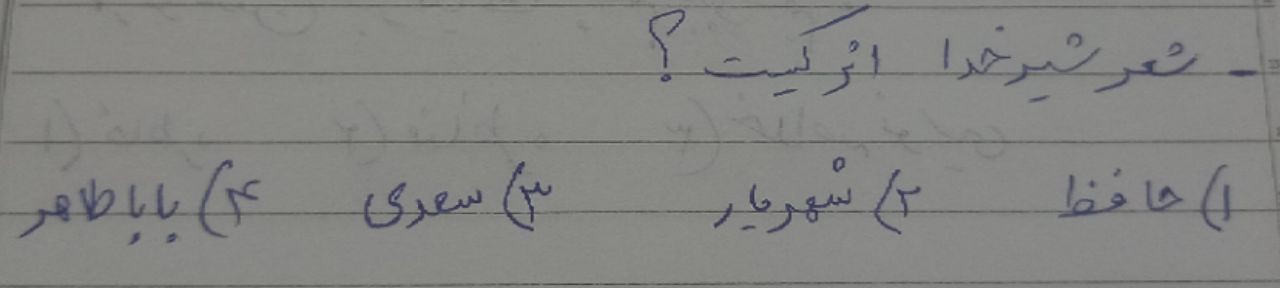 - شعر شیر خدا اثر کیست ؟
۱) حافظ ۲) شهریار ۳) سعدی ۴) باباطاهر